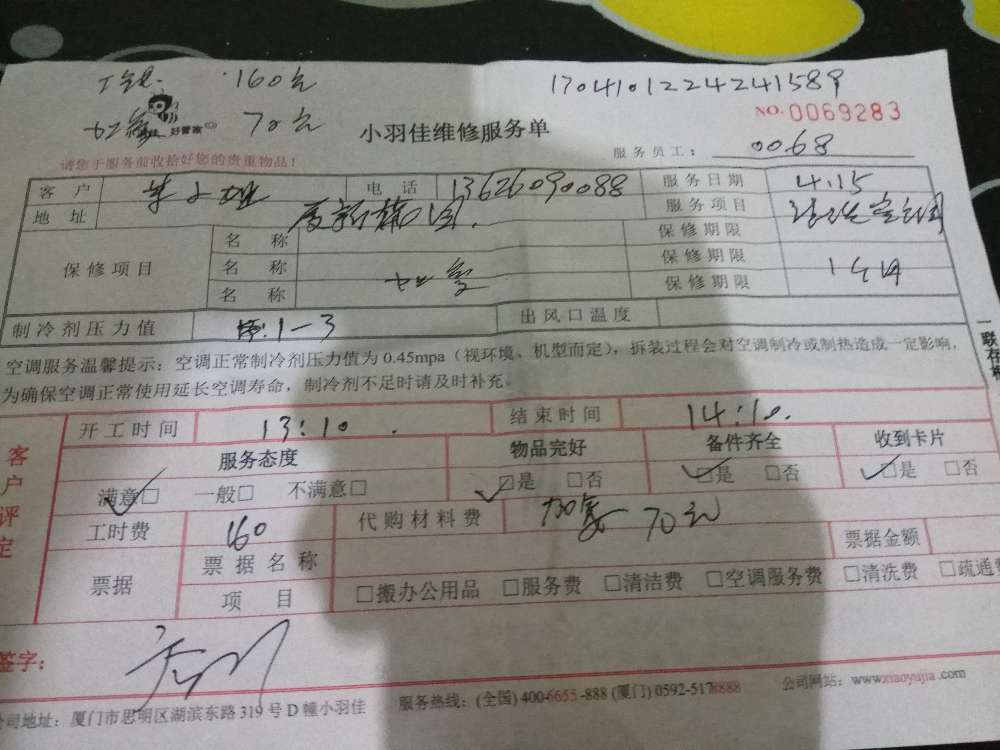 160元
1704101224241589
NO.0069283
好管家
70元
小羽佳维修服务单
请您于服务前收拾好您的贵重物品！
服务员工：0068
客户 小姐 电话 13626090088 服务日期 4.15
地址 服务项目 空调
保修项目 名称 保修期限
名称 加氟 保修期限
名称 保修期限
制冷剂压力值 1-3 出风口温度
空调服务温馨提示：空调正常制冷剂压力值为0.45mpa（视环境、机型而定），拆装过程会对空调制冷或制热造成一定影响，
为确保空调正常使用延长空调寿命，制冷剂不足时请及时补充。
一联存根
客户评定
开工时间 13:10. 结束时间 14:10.
服务态度 物品完好 备件齐全 收到卡片
满意□ 一般□ 不满意□ □是 □否 □是 □否 □是 □否
工时费 160 代购材料费 加氟 70元
票据 票据名称 票据金额
项目 □搬办公用品 □服务费 □清洁费 □空调服务费 □清洗费 □疏通费
签字：
公司地址：厦门市思明区湖滨东路319号D幢小羽佳 服务热线：(全国) 400-6655-888 (厦门) 0592-5178888 公司网站：www.xiaoyujia.com